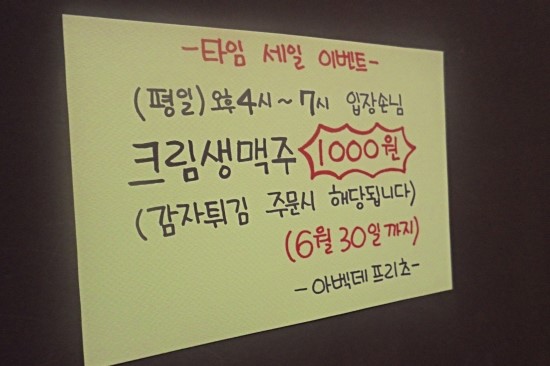 -타임 세일 이벤트-
(평일)오후4시~7시 입장손님
크림생맥주 1000원
(감자튀김 주문시 해당됩니다)
(6월 30일까지)
-아벡데프리츠-